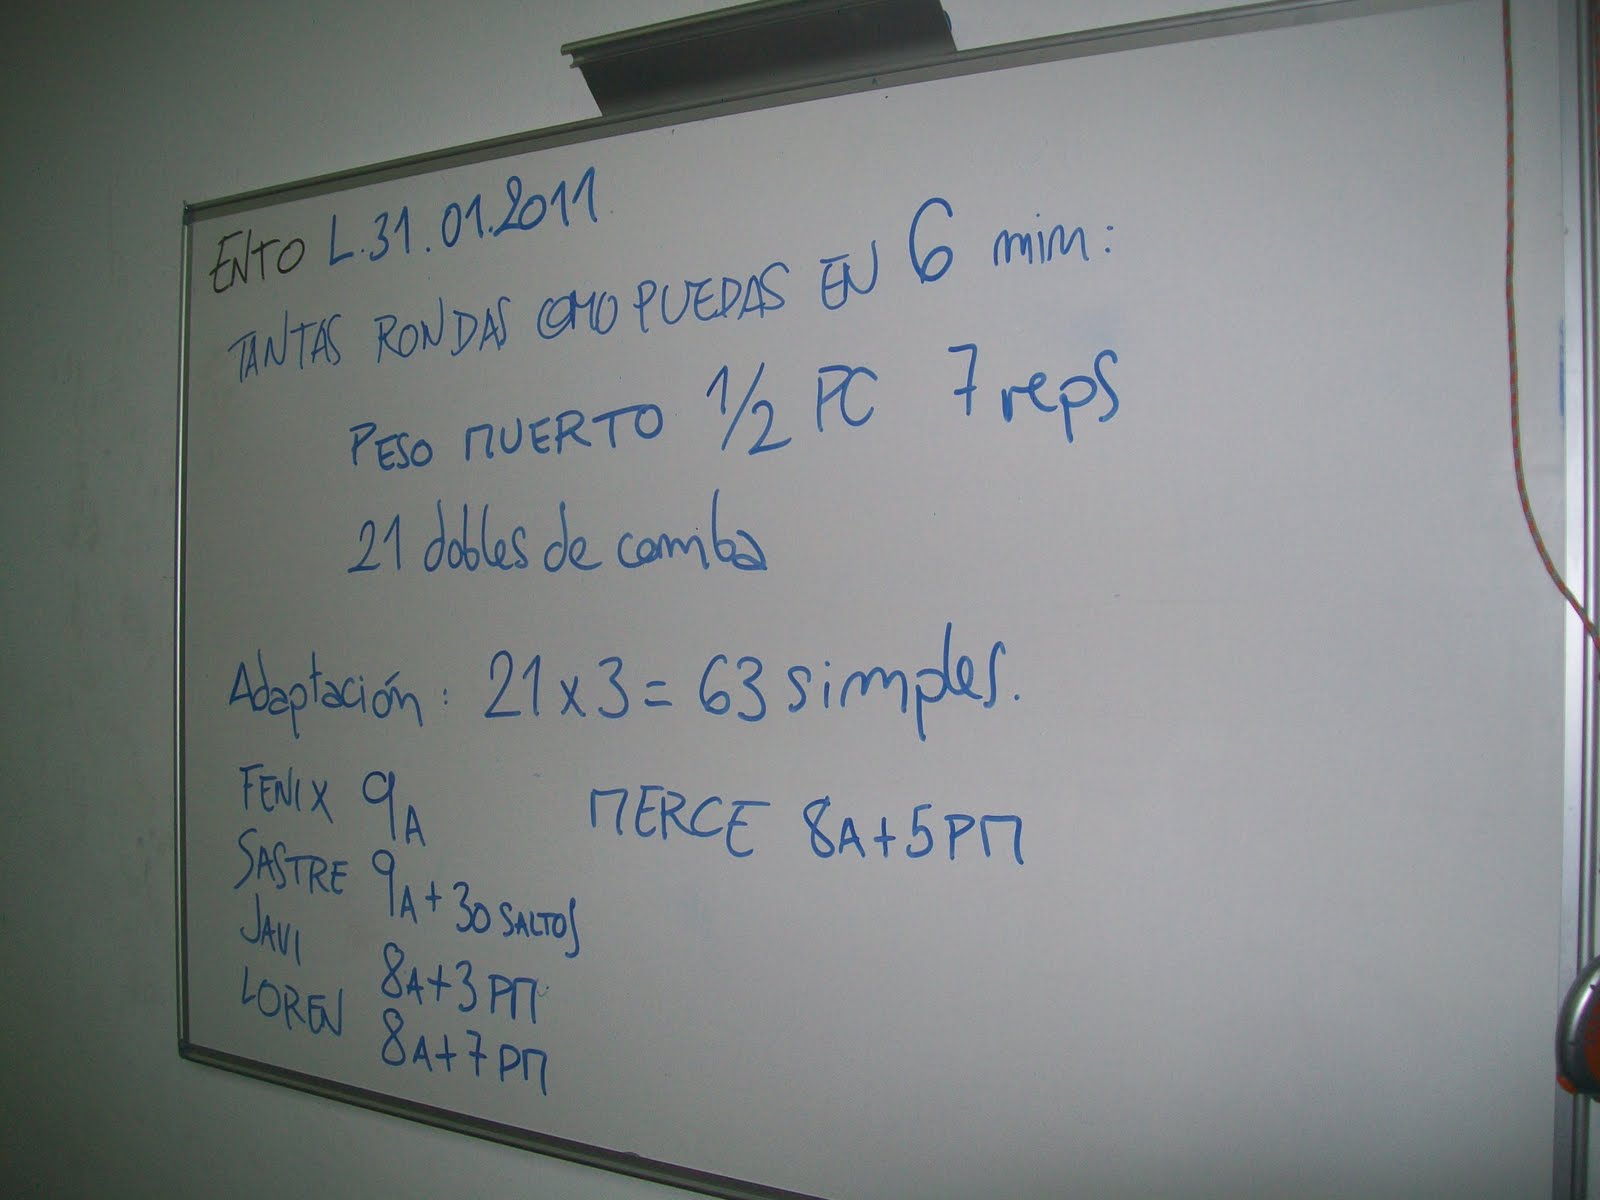 ENTO L.31.01.2011
TANTAS RONDAS COMO PUEDAS EN 6 min:
PESO MUERTO 1/2 PC 7 reps
21 dobles de comba
Adaptación: 21 x 3 = 63 simples.
FENIX 9A
SASTRE 9A + 30 SALTOS
JAVI 8A+3 PM
LOREN 8A+7 PM
MERCE 8A+5 PM